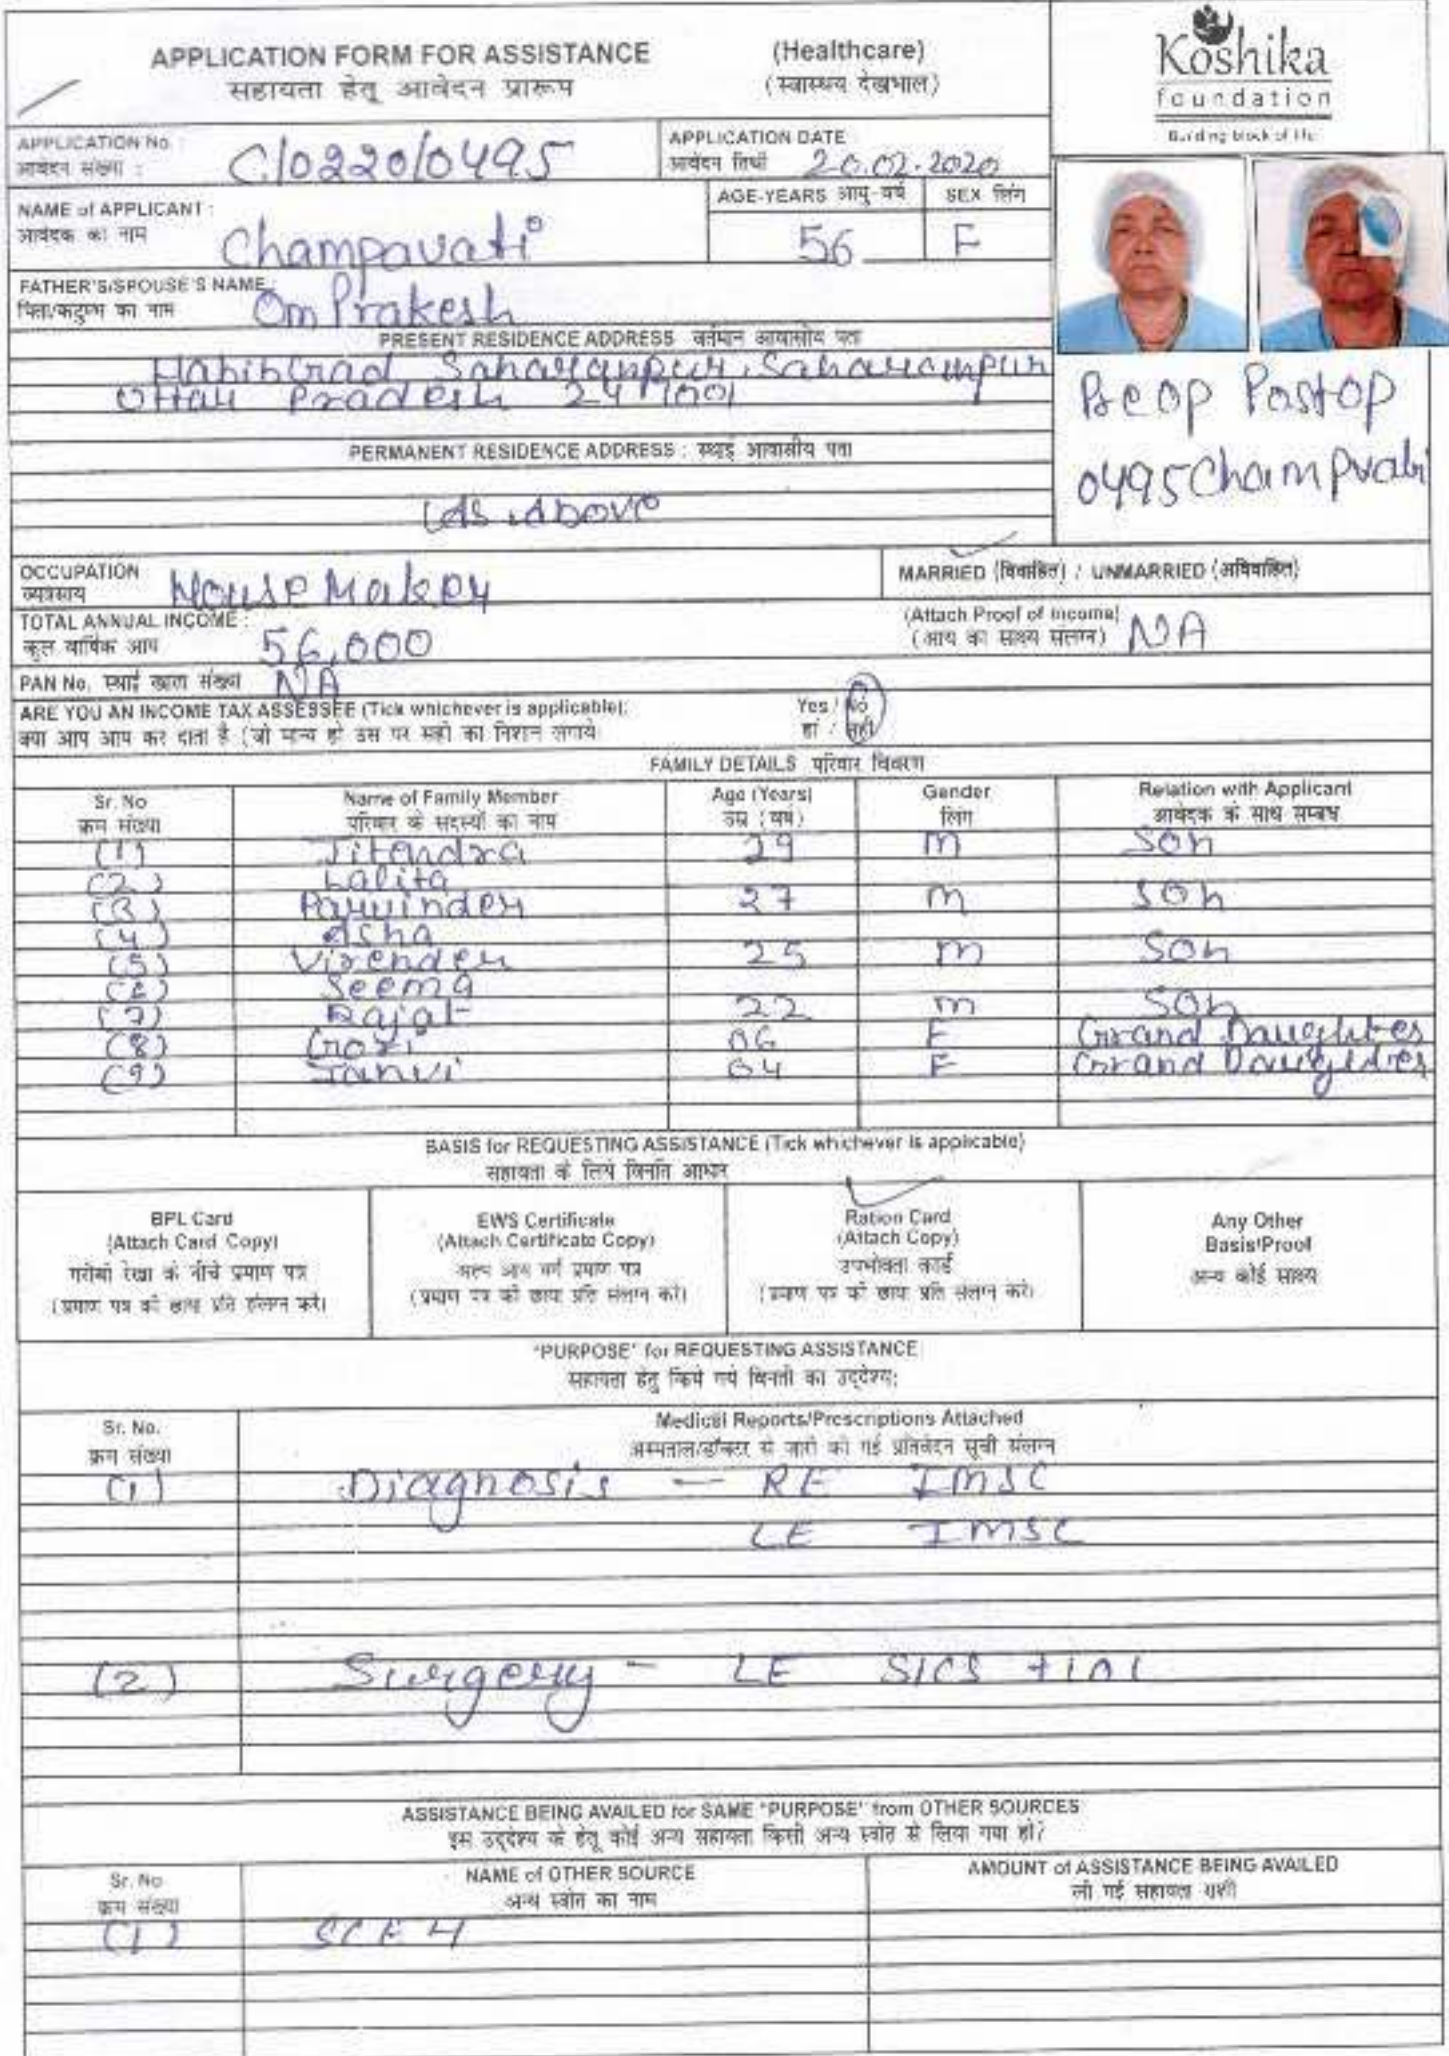 APPLICATION FORM FOR ASSISTANCE (Healthcare)
सहायता हेतू आवेदन प्रारूप (स्वास्थ्य देखभाल)
Koshika
foundation
Building block of life
APPLICATION No. :
आवेदन संख्या : C/0220/0495
APPLICATION DATE
आवेदन तिथी 20.02.2020
NAME of APPLICANT :
आवेदक का नाम Champavati
AGE-YEARS आयु-वर्ष 56
SEX लिंग F
FATHER'S/SPOUSE'S NAME :
पिता/कटुम्ब का नाम Om Prakesh
PRESENT RESIDENCE ADDRESS वर्तमान आवासीय पता
Saharanpur, Saharanpur
Uttar Pradesh 247001
PERMANENT RESIDENCE ADDRESS : स्थाई आवासीय पता
As Above
Preop Postop
0495 Champvati
OCCUPATION
व्यवसाय House Maker
MARRIED (विवाहित) / UNMARRIED (अविवाहित)
TOTAL ANNUAL INCOME :
कुल वार्षिक आय 56,000
(Attach Proof of Income)
(आय का साक्ष्य संलग्न) NA
PAN No. स्थाई खाता संख्या NA
ARE YOU AN INCOME TAX ASSESSEE (Tick whichever is applicable): Yes / No
क्या आप आय कर दाता है (जो मान्य हो उस पर सही का निशान लगाये हां / नहीं
FAMILY DETAILS परिवार विवरण
Sr. No Name of Family Member Age (Years) Gender Relation with Applicant
क्रम संख्या परिवार के सदस्यों का नाम उम्र (वर्ष) लिंग आवेदक के साथ सम्बंध
(1) Jitendra 29 M Son
(2) Lalita
(3) Parvinder 27 M Son
(4) Asha
(5) Virender 25 M Son
(6) Seema
(7) Rajat 22 M Son
(8) Gori 06 F Grand Daughter
(9) Tanvi 04 F Grand Daughter
BASIS for REQUESTING ASSISTANCE (Tick whichever is applicable)
सहायता के लिये विनति आधार
BPL Card
(Attach Card Copy)
गरीबी रेखा के नीचे प्रमाण पत्र
(प्रमाण पत्र की छाया प्रति संलग्न करे)
EWS Certificate
(Attach Certificate Copy)
अल्प आय वर्ग प्रमाण पत्र
(प्रमाण पत्र की छाया प्रति संलग्न करे)
Ration Card
(Attach Copy)
उपभोक्ता कार्ड
(प्रमाण पत्र की छाया प्रति संलग्न करे)
Any Other
Basis/Proof
अन्य कोई साक्ष्य
"PURPOSE" for REQUESTING ASSISTANCE
सहायता हेतु किये गये विनती का उद्देश्य:
Sr. No. Medical Reports/Prescriptions Attached
क्रम संख्या अस्पताल/डॉक्टर से जारी की गई प्रतिवेदन सूची संलग्न
(1) Diagnosis - RE IMSC
LE IMSC
(2) Surgery - LE SICS + IOL
ASSISTANCE BEING AVAILED for SAME "PURPOSE" from OTHER SOURCES
इस उद्देश्य के हेतू कोई अन्य सहायता किसी अन्य स्त्रोत से लिया गया हो?
Sr. No NAME of OTHER SOURCE AMOUNT of ASSISTANCE BEING AVAILED
क्रम संख्या अन्य स्त्रोत का नाम ली गई सहायता राशी
(1) SCEH